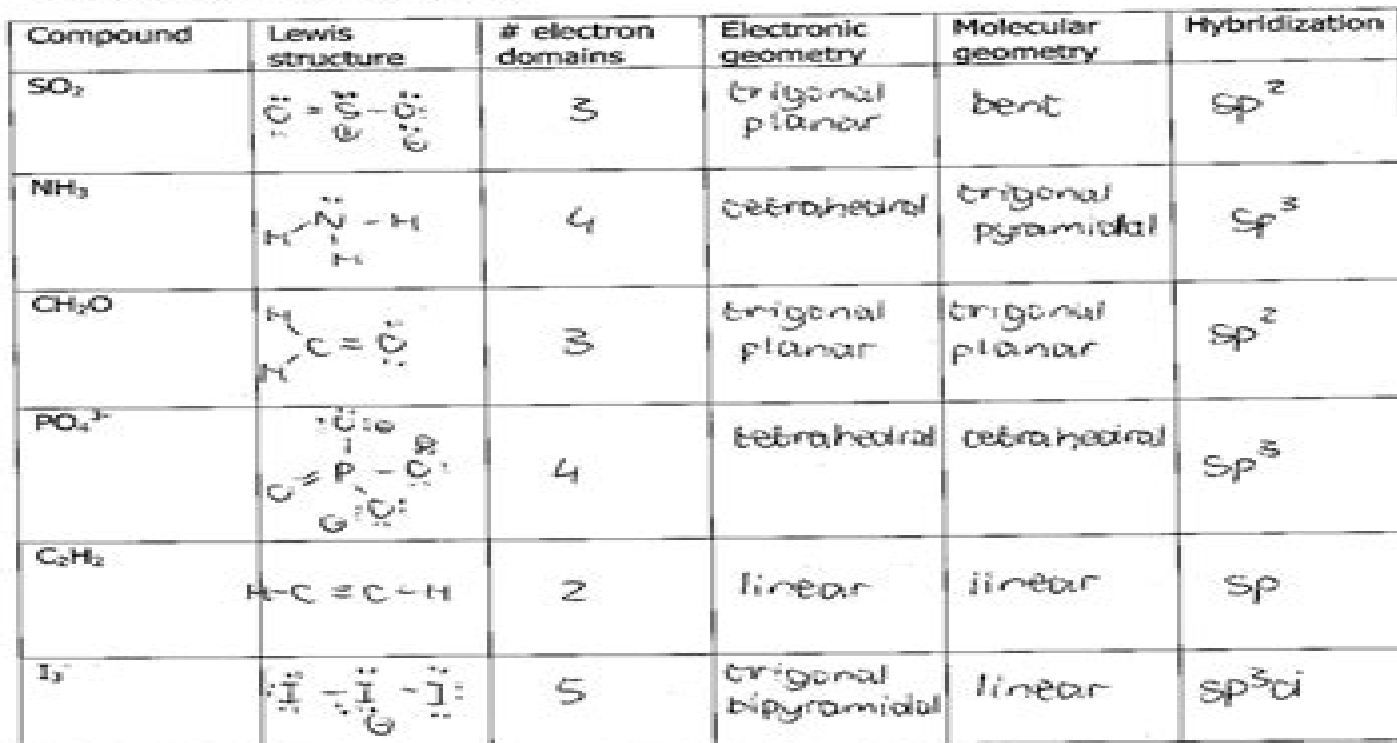 Compound
Lewis structure
# electron domains
Electronic geometry
Molecular geometry
Hybridization
SO₂
O = S - O
3
trigonal planar
bent
sp²
NH₃
H N - H
H
4
tetrahedral
trigonal pyramidal
sp³
CH₂O
H
C = O
H
3
trigonal planar
trigonal planar
sp²
PO₄³⁻
O
O = P - O
O
4
tetrahedral
tetrahedral
sp³
C₂H₂
H-C ≡ C - H
2
linear
linear
sp
I₃⁻
I - I - I
5
trigonal bipyramidal
linear
sp³d